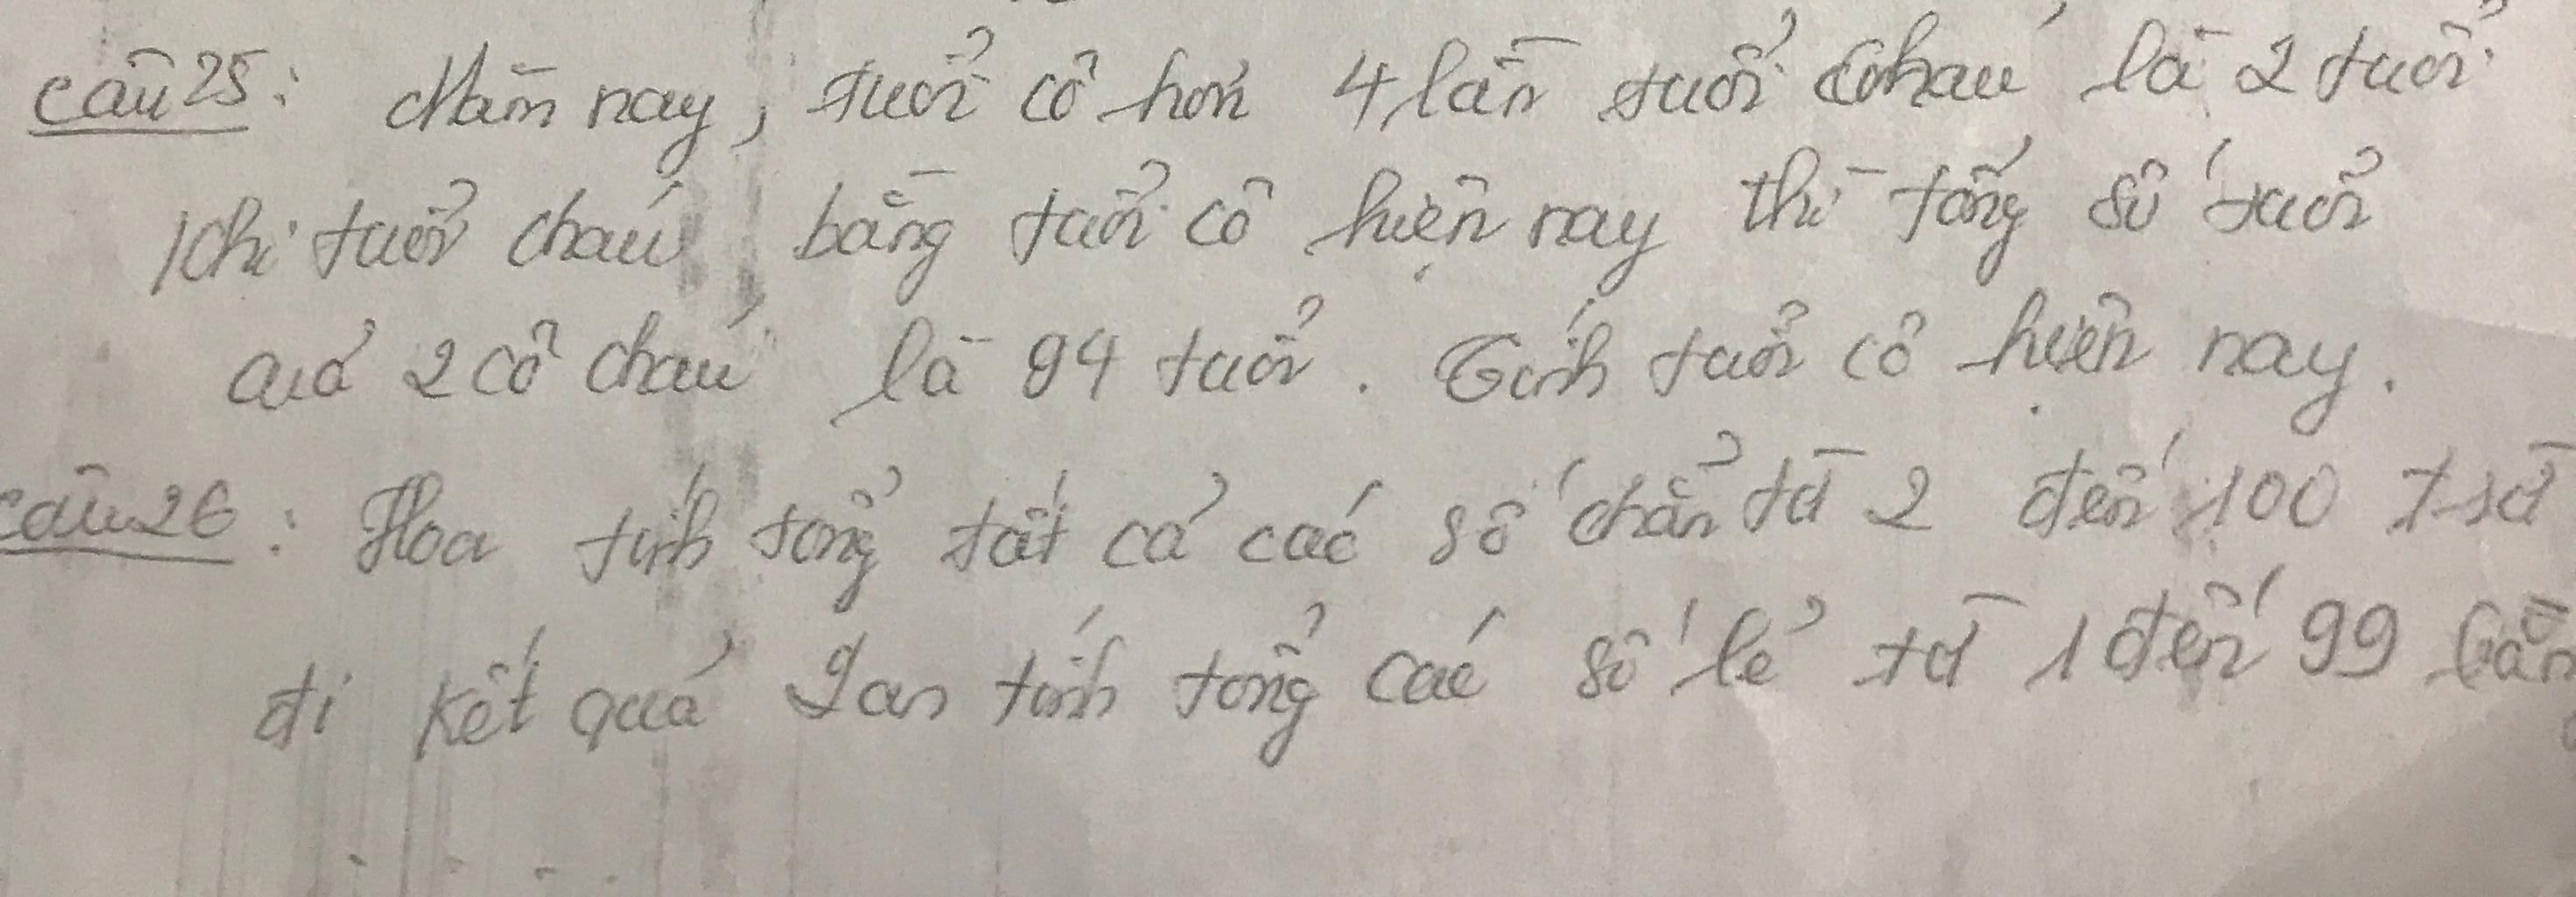 Câu 25: Năm nay, tuổi cô hơn 4 lần tuổi cháu là 2 tuổi.
Khi tuổi cháu bằng tuổi cô hiện nay thì tổng số tuổi
của 2 cô cháu là 94 tuổi. Tính tuổi cô hiện nay.
Câu 26: Hoa tính tổng tất cả các số chẵn từ 2 đến 100 trừ
đi kết quả Lan tính tổng các số lẻ từ 1 đến 99 bằng